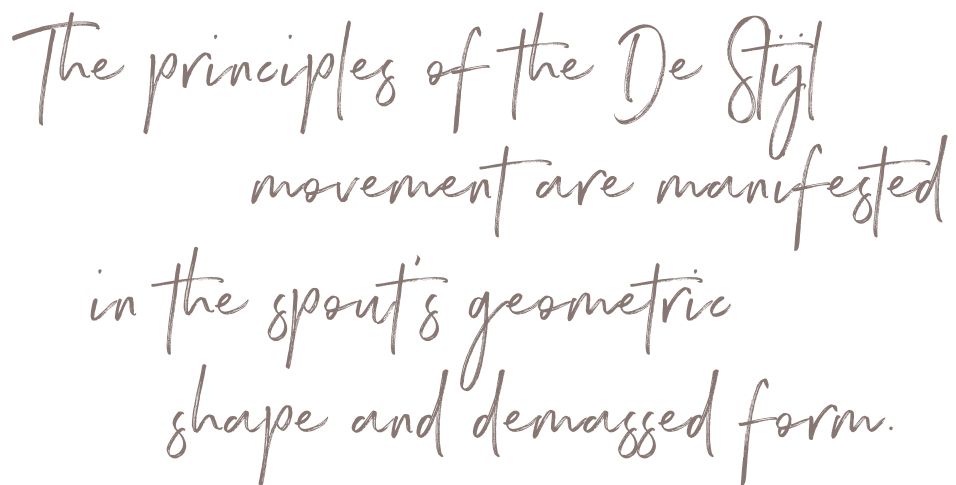 The principles of the De Stijl
movement are manifested
in the spout's geometric
shape and demassed form.